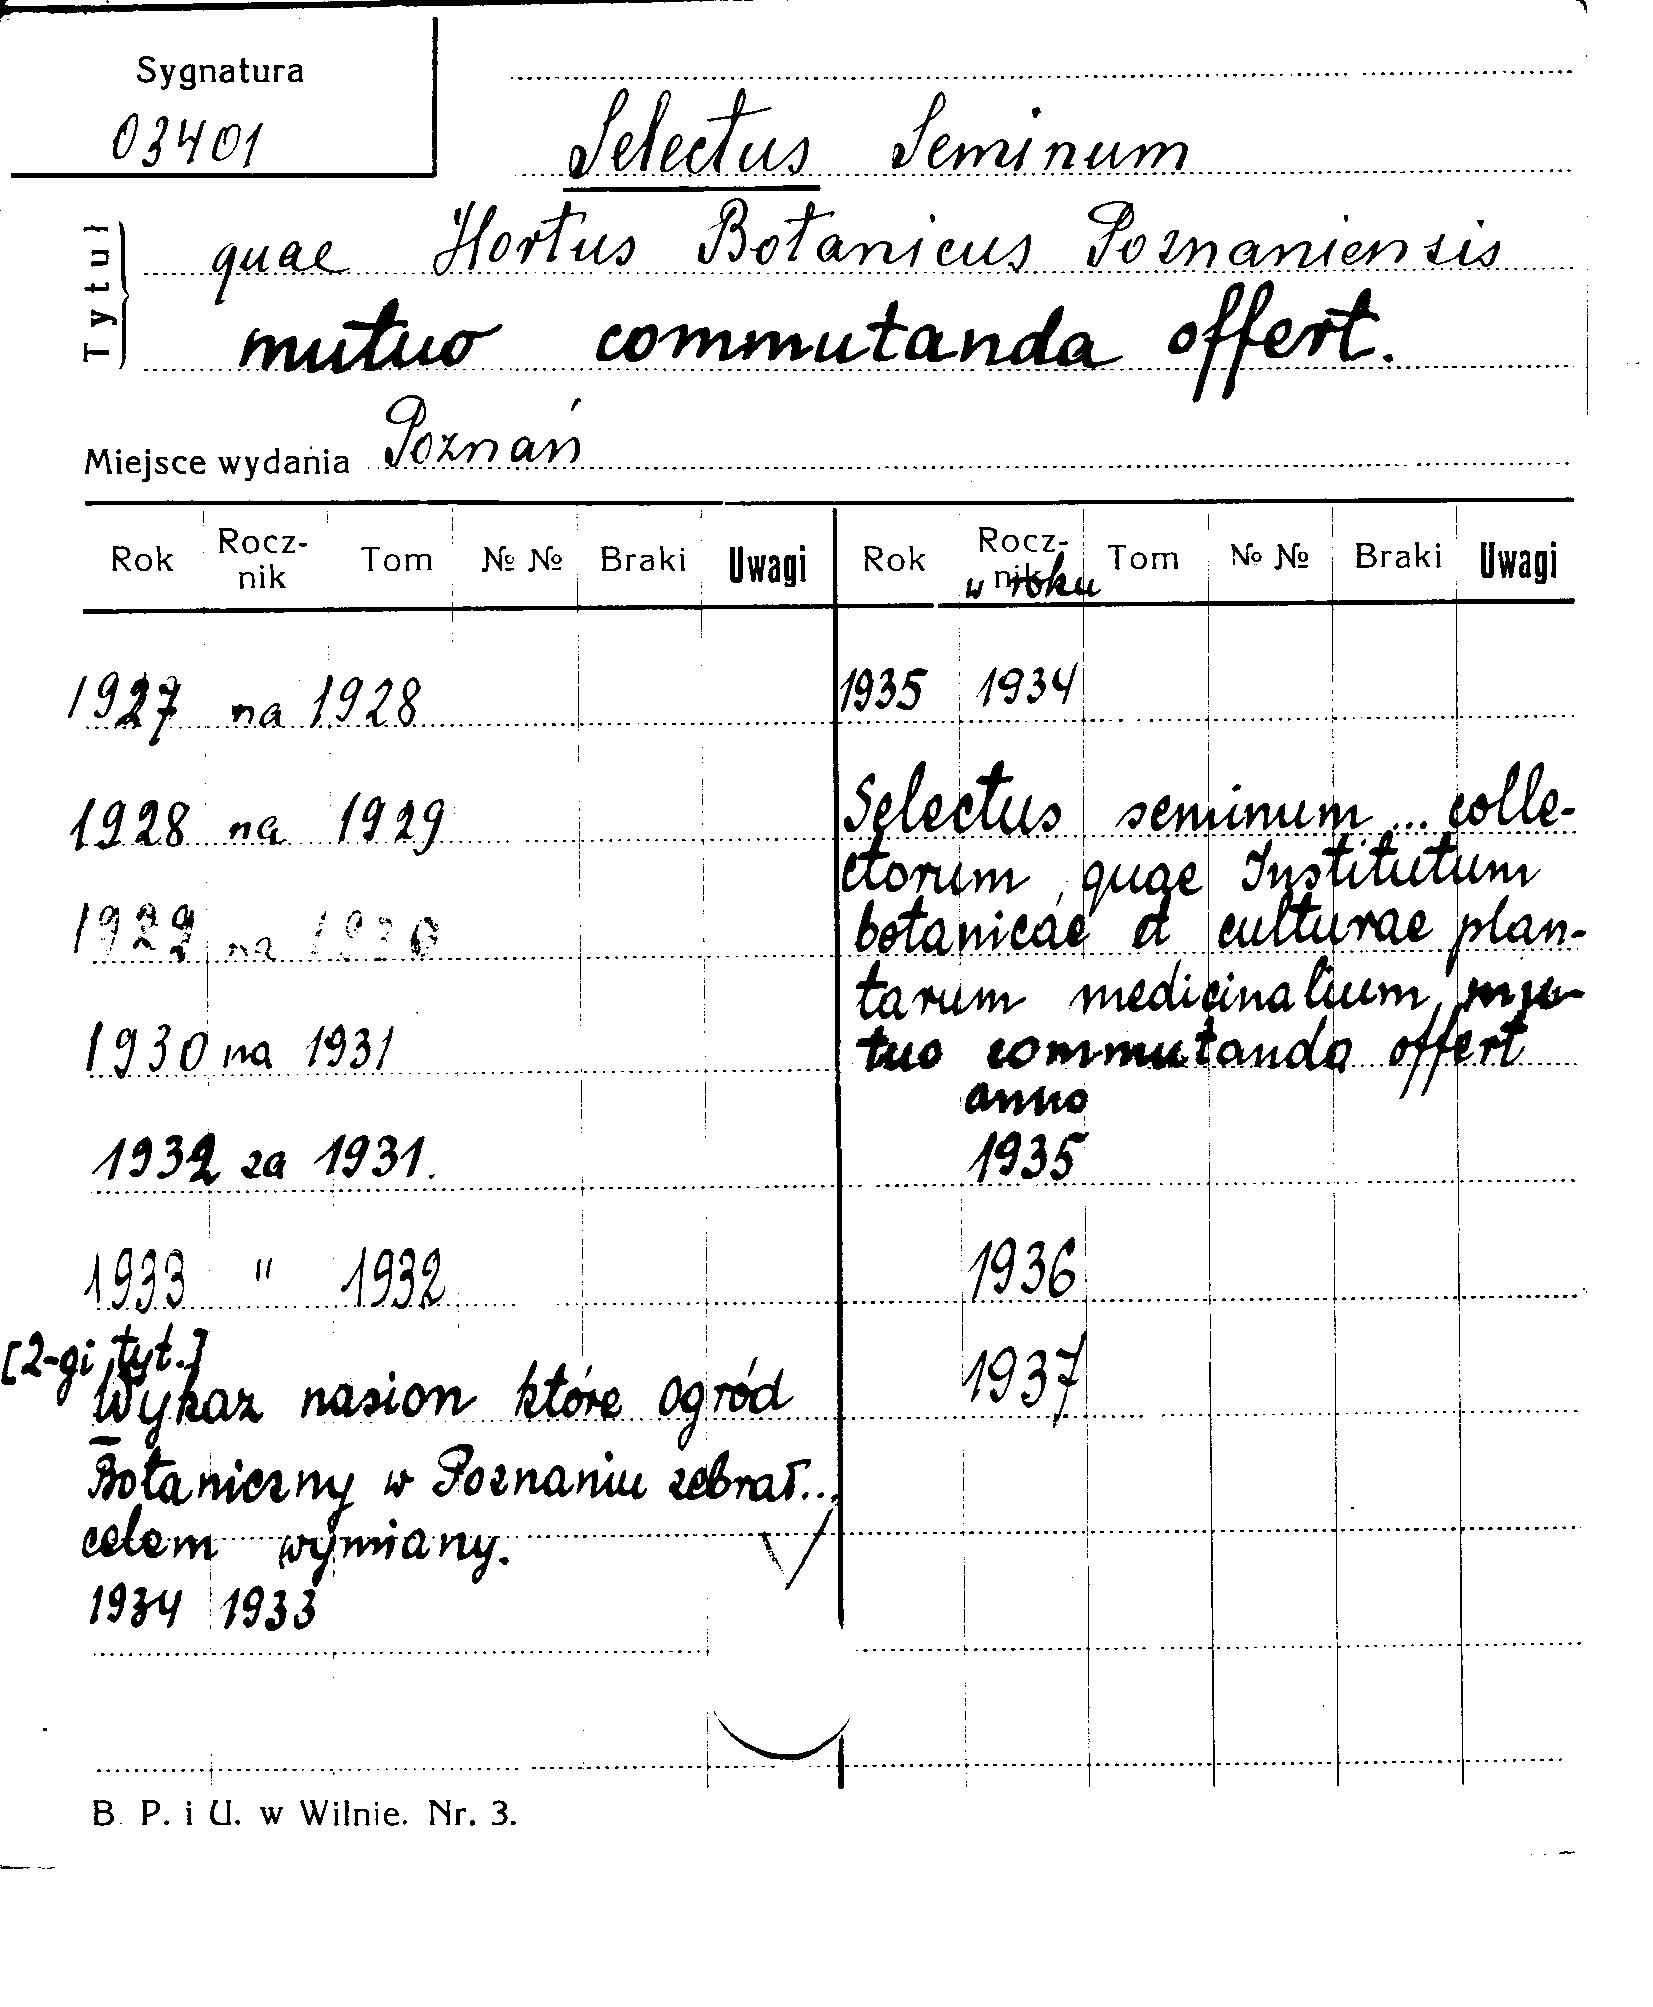 Sygnatura
03401
Selectus Seminum
Tytuł
quae Hortus Botanicus Poznaniensis
mutuo commutanda offert.
Miejsce wydania Poznań
Rok Rocz-nik Tom № № Braki Uwagi Rok Rocz-nik Tom № № Braki Uwagi
w roku
1927 na 1928
1928 na 1929
1929 na 1930
1930 na 1931
1932 za 1931.
1933 " 1932
[2-gi tyt.]
Wykaz nasion które ogród
Botaniczny w Poznaniu zebrał...
celem wymiany.
1934 1933
1935 1934
Selectus seminum ... colle-
ctorum, quae Institutum
botanicae et culturae plan-
tarum medicinalium mu-
tuo commutanda offert
anno
1935
1936
1937
B. P. i U. w Wilnie. Nr. 3.